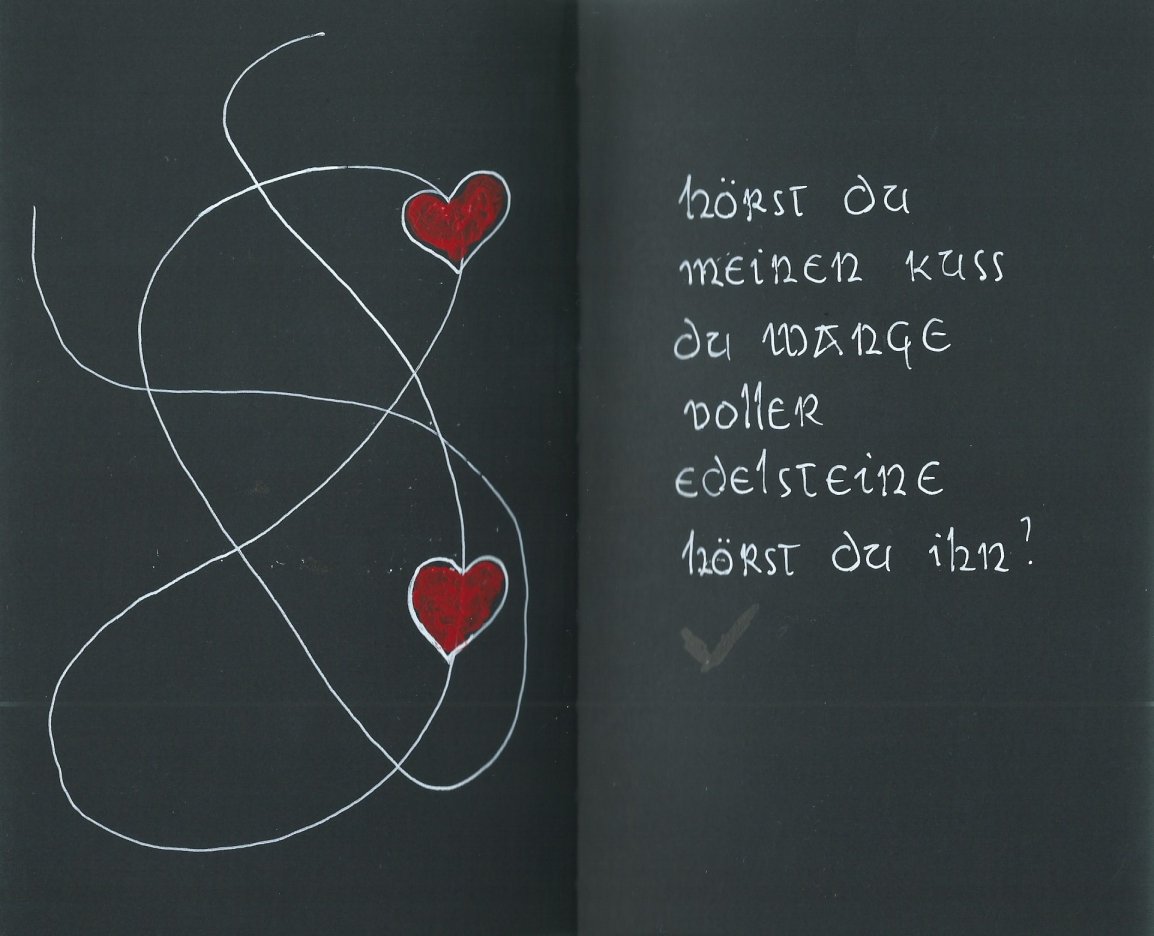 hörst du
meinen kuss
du wange
voller
edelsteine
hörst du ihn?